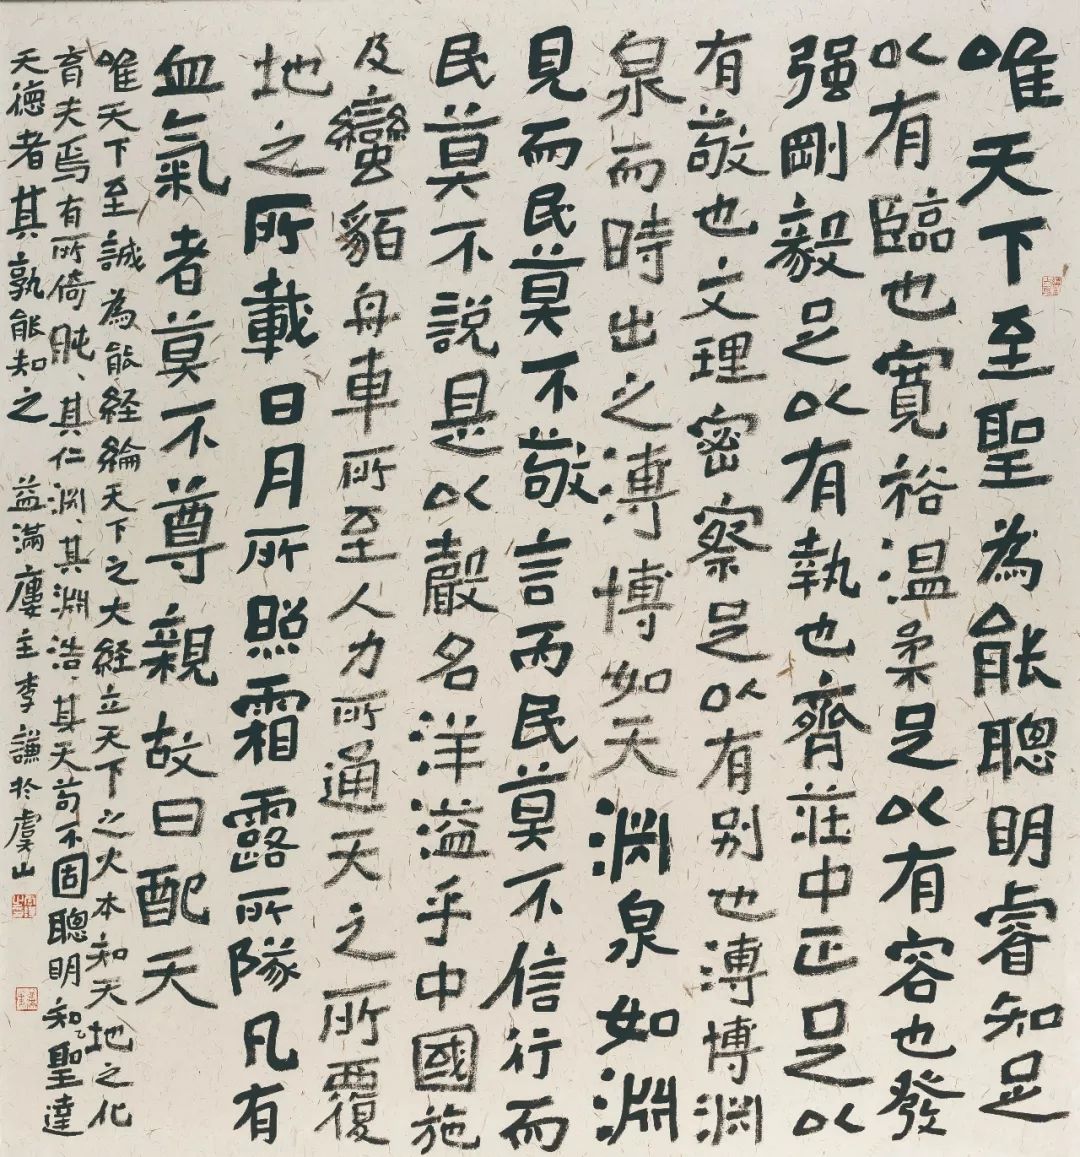 唯天下至聖為能聰明睿知足
以有臨也寬裕温柔足以有容也發
强剛毅足以有執也齊莊中正足以
有敬也文理密察足以有别也溥博渊
泉而時出之溥博如天渊泉如淵
見而民莫不敬言而民莫不信行而
民莫不說是以聲名洋溢乎中國施
及蠻貊舟車所至人力所通天之所覆
地之所載日月所照霜露所隊凡有
血氣者莫不尊親故曰配天
唯天下至誠為能経綸天下之大経立天下之大本知天地之化
育夫焉有所倚肫、其仁渊、其淵浩、其天苟不固聰明知聖達
天德者其孰能知之 益滿廔主李謙於虞山